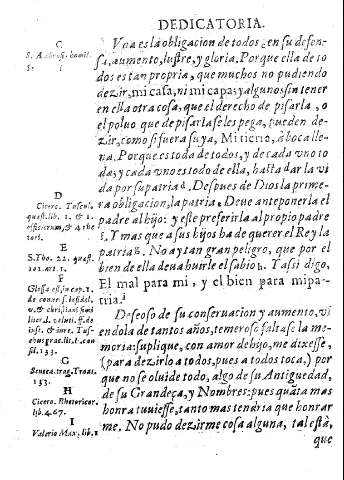 DEDICATORIA.
Vna es la obligacion de todos en su defen-
sa, aumento, lustre, y gloria. Porque ella de to
dos es tan propria, que muchos no pudiendo
dezir, mi casa, ni mi capa; y algunos sin tener
en ella otra cosa, que el derecho de pisarla, o
el poluo que de pisarla se les pega, pueden de-
zir, como si fuera suya, Mi tierra, à boca lle-
na. Porque es toda de todos, y de cada vno to
da, y cada vno es todo de ella, hasta dar la vi
da por su patria. Despues de Dios la prime-
ra obligacion, la patria. Deue anteponerla el
padre al hijo: y este preferirla al propio padre
. Y mas que a sus hijos ha de querer el Rey la
patria. No ay tan gran peligro, que por el
bien de ella deua huirle el sabio. Y assi digo,
El mal para mi, y el bien para mi pa-
tria.
Deseoso de su conseruacion y aumento, vi
endola de tantos años, temeroso faltasse la me
moria: suplique, con amor de hijo, me dixesse,
(para dezirlo a todos, pues a todos toca,) por
que no se oluide todo, algo de su Antiguedad,
de su Grandeça, y Nombres: pues quãta mas
honra tuuiesse, tanto mas tendria que honrar
me. No pudo dezirme cosa alguna, tal està,
que
C
S. Ambros. homil.
D
Cicero. Tuscul.
quæst. lib. 1. & 1.
officiorum, & 4 rhe
tori.
E
S. Tho. 22. quæst.
101. ar. 1.
F
Glossa est, in cap. 1.
G
Seneca. trag. Troas.
133.
H
Cicero. Rhetoricor.
lib. 4. 67.
I
Valerio Max. lib. 1